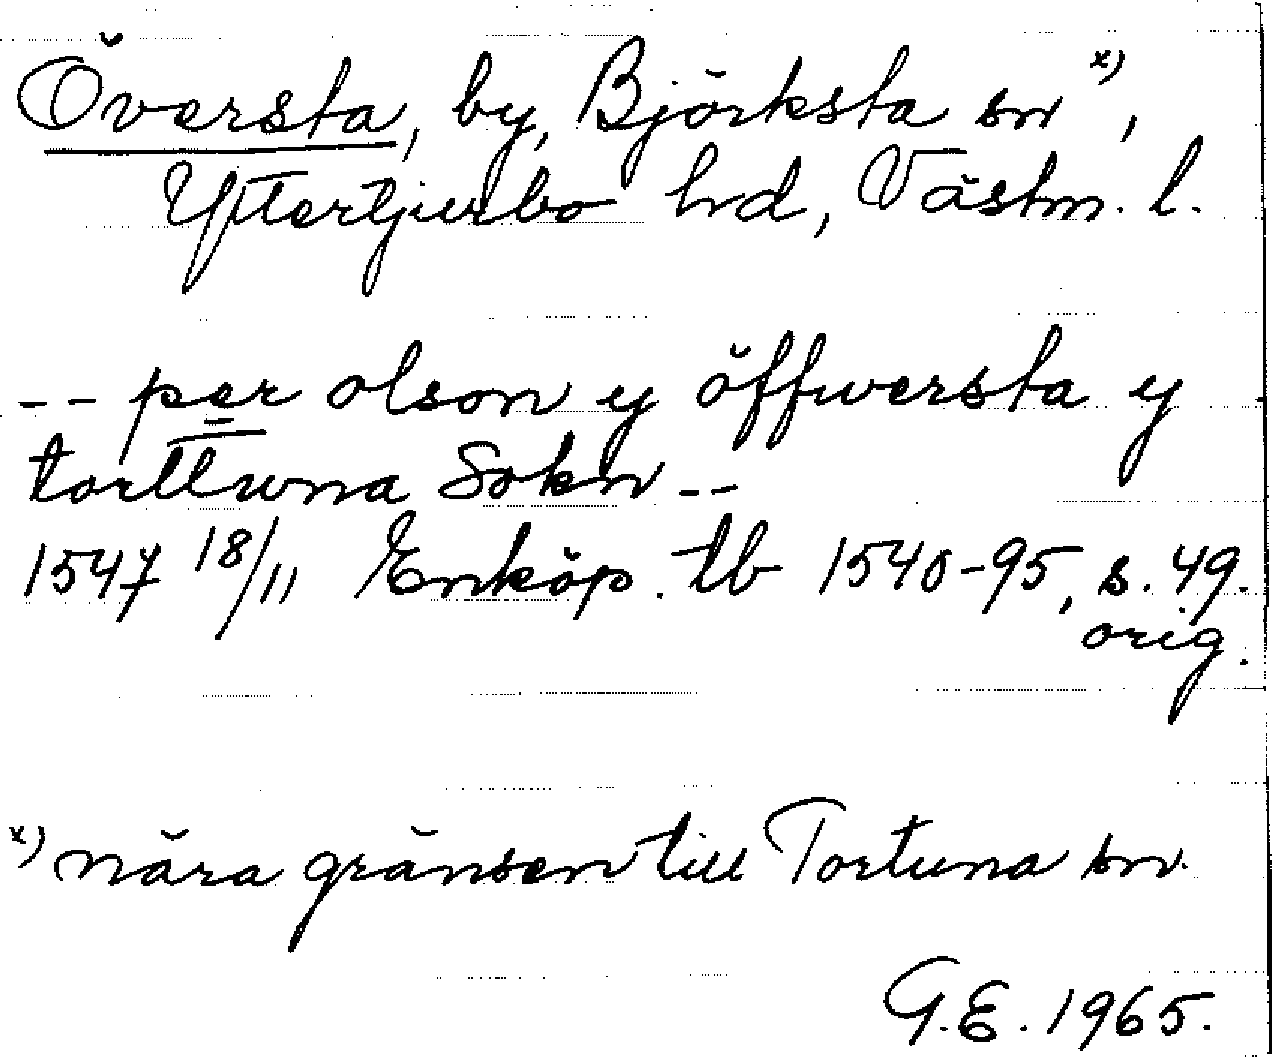 Översta, by, Björksta sn x),
Yttertjurbo hd, Västm. l.
-- per olson y öffwersta y
torttwna Sokn --
1547 18/11 Enköp. tb 1540-95, s. 49.
orig.
x) nära gränsen till Tortuna sn.
G.E. 1965.